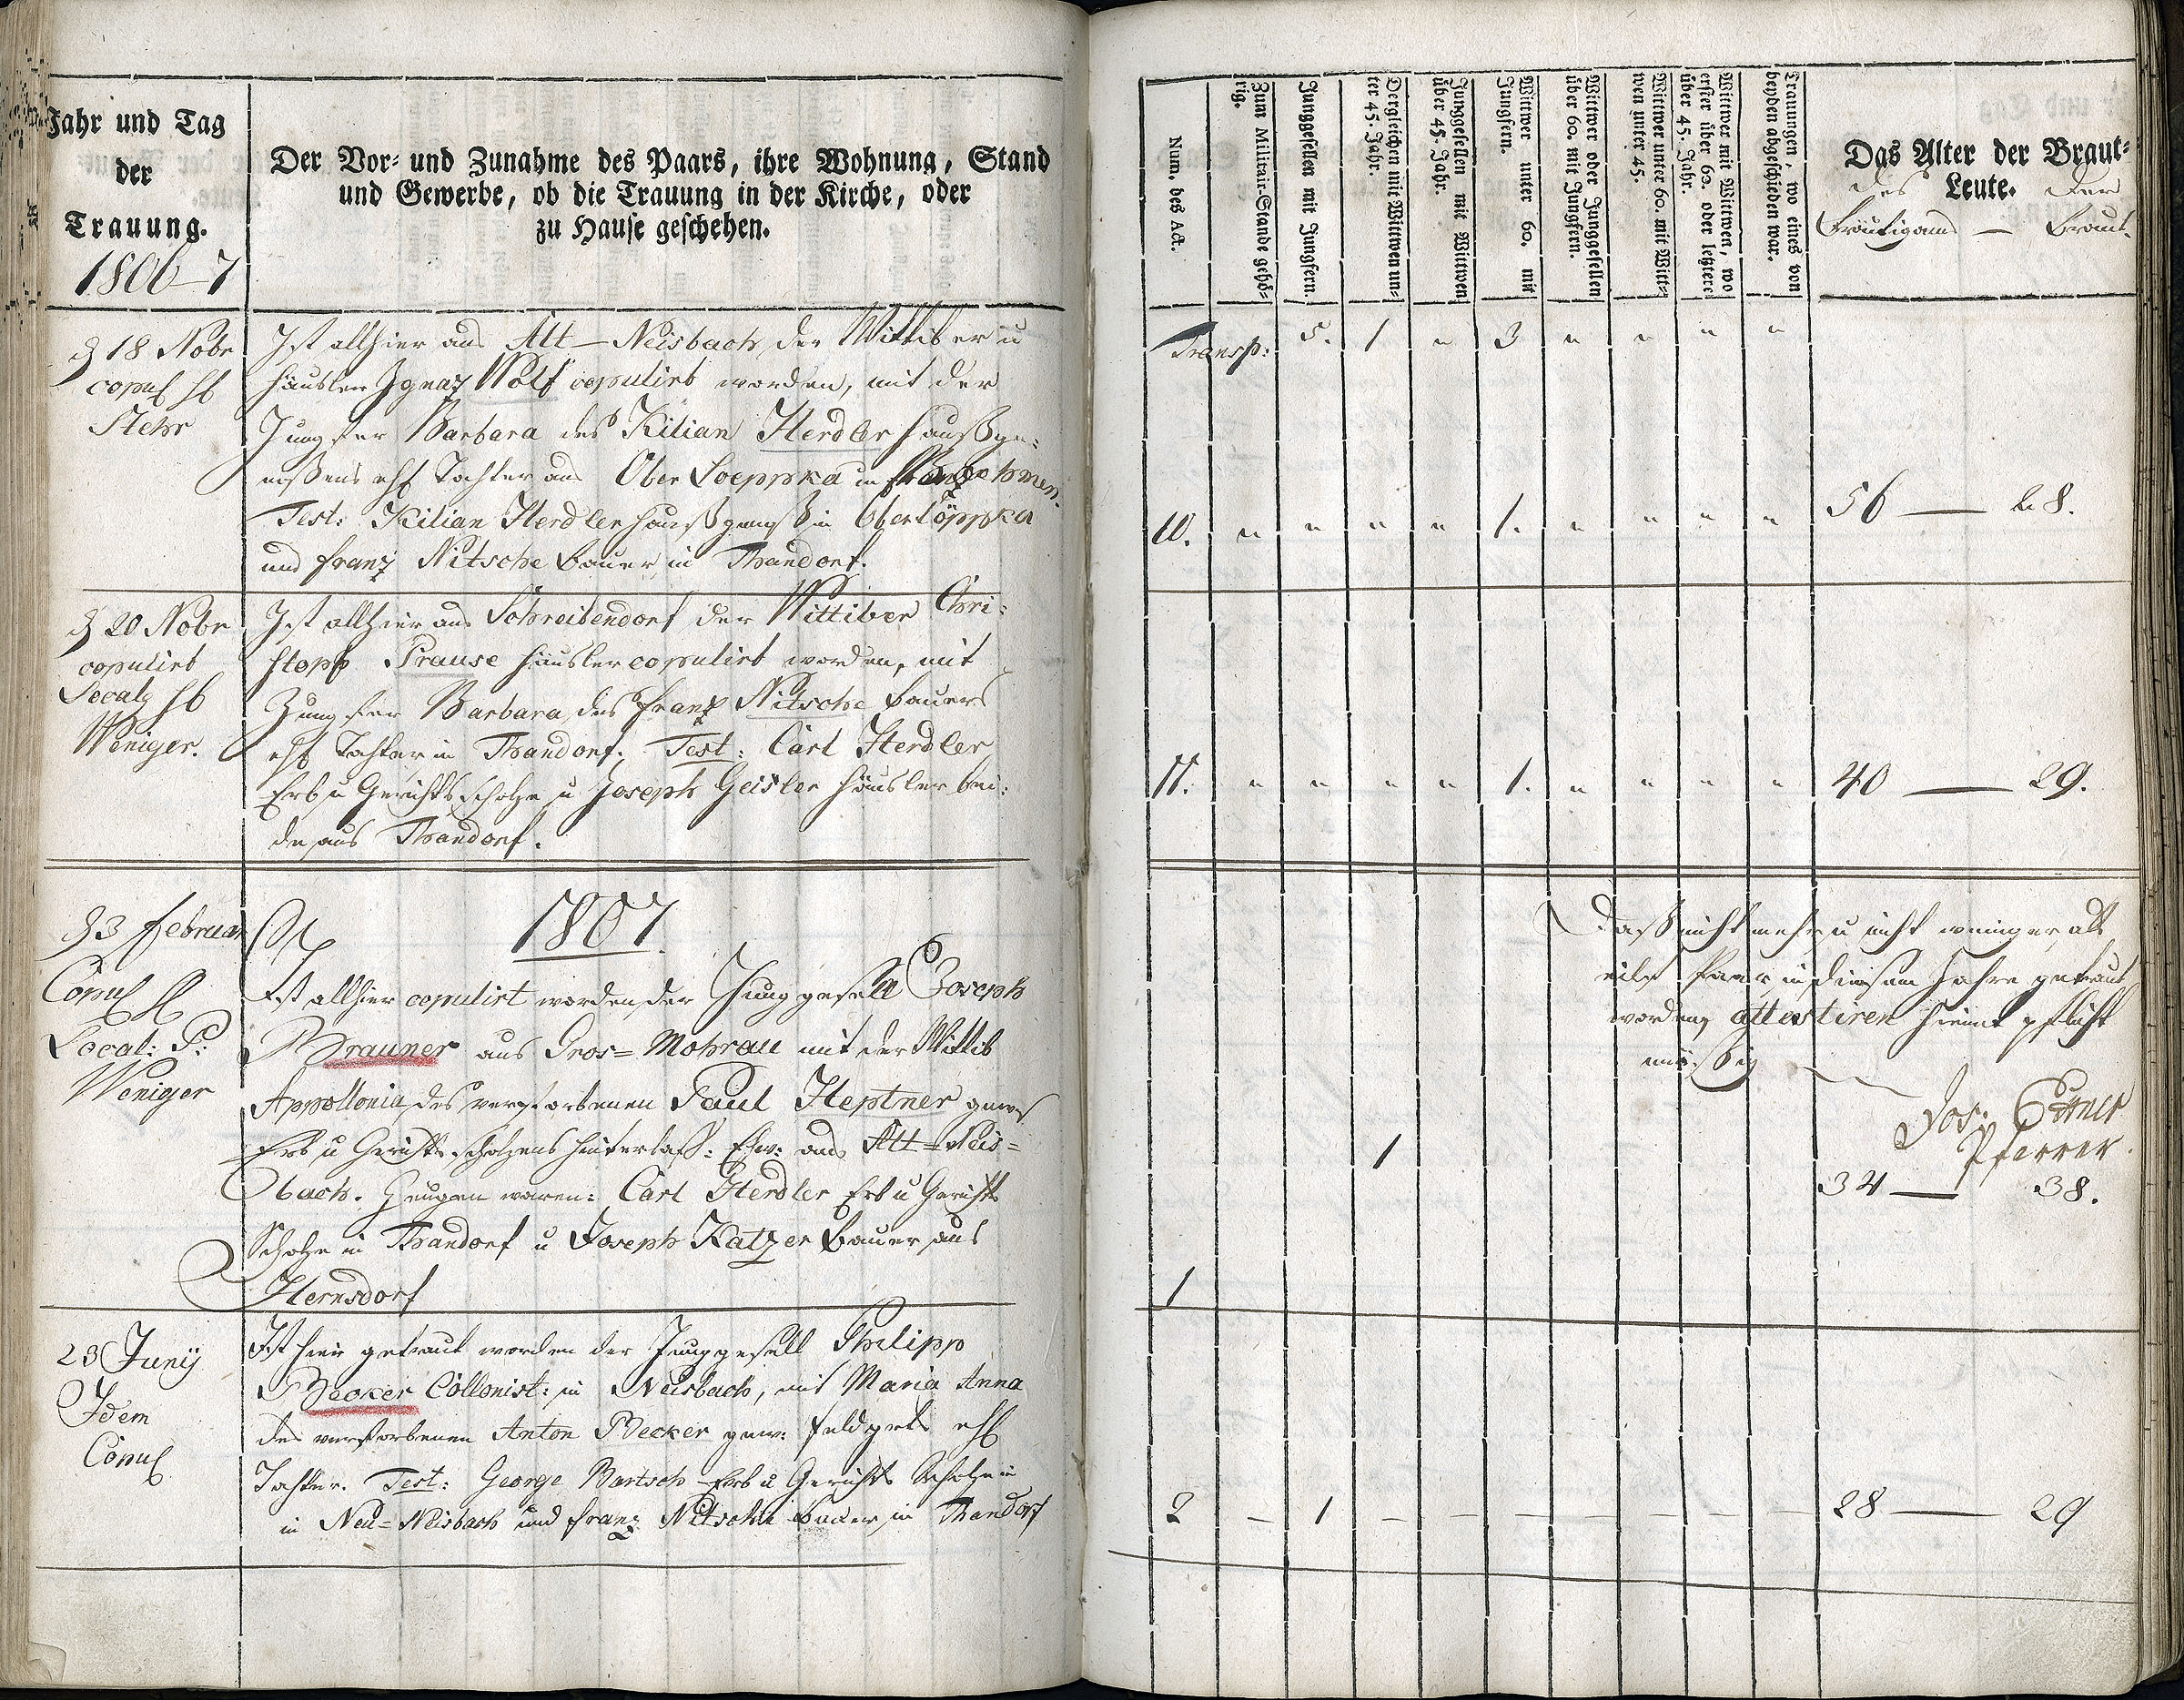 Jahr und Tag
der
Trauung.
1806-7
Der Vor- und Zunahme des Paars, ihre Wohnung, Stand
und Gewerbe, ob die Trauung in der Kirche, oder
zu Hause geschehen.
18 Nobr
Stehr
Ist allhier aus Alt-Neisbach der Wittiber u
Häusler Ignaz Wolf copulirt worden, mit der
Jungfer Barbara des Kilian Herdler Haußge-
noßens Tochter aus Ober in
Test: Kilian Herdler in
und Franz Nitsche Bauer in Thandorf.
20 Nobr
copulirt
Weniger.
Ist allhier aus Schreibendorf der Wittiber Chri-
stoph Prause Häusler copulirt worden, mit
Jungfer Barbara, des Franz Nitsche Bauers
Tochter in Thandorf. Test: Carl Herdler
Erb u Gerichts Scholze u Joseph Geisler Häusler bei-
de aus Thandorf.
1807
3 Februar
Local: P:
Weniger
Ist allhier copulirt worden der Junggesell Joseph
Brauner aus Gros-Mohrau mit der Wittib
Appollonia, des verstorbenen Paul Heptner
Erb u Gerichts Scholzens hinterlaß: aus Alt-Neis-
bach. Zeugen waren: Carl Herdler Erb u Gerichts
Scholze in Thandorf u Joseph Katzer Bauer aus
Hernsdorf
23 Junij
Idem
Ist hier getraut worden der Junggesell Philipp
Becker Collonist: in Neisbach, mit Maria Anna
des verstorbenen Anton Becker gew:
Tochter. Test: George Bartsch Erb u Gerichts Scholze
in Neu-Neisbach und Franz Nitsche Bauer in Thandorf
Num. des Act.
Zum Militair-Stande gehö-
rig.
Junggesellen mit Jungfern.
Dergleichen mit Wittwen un-
ter 45. Jahr.
Junggesellen mit Wittwen
über 45. Jahr.
Wittwer unter 60. mit
Jungfern.
Wittwer oder Junggesellen
über 60. mit Jungfern.
Wittwer unter 60. mit Witt-
wen unter 45.
Wittwer mit Wittwen, wo
erster über 60. oder letztere
über 45. Jahr.
Trauungen, wo eines von
beyden abgeschieden war.
Das Alter der Braut-
Leute.
des der
Bräutigams — Braut.
Transp: 5. 1 " 3 " " " "
10. " " " " 1. " " " " 56 — 28.
11. " " " " 1. " " " " 40 — 29.
Daß nicht mehr u nicht weniger als
eilf Paar in diesem Jahre getraut
worden, attestiren hiemit pflicht
mäßig
Pfarrer.
1 1 34 — 38.
2 — 1 — — — — — — — 28 — 29